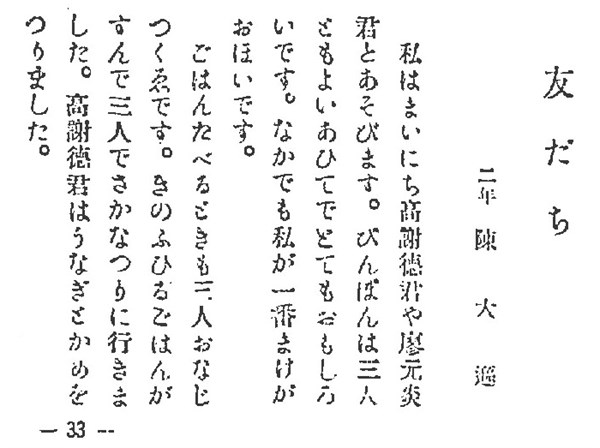 友だち
二年 陳大遜
私はまいにち高謝徳君や廖元炎
君とあそびます。ぴんぽんは三人
ともよいあひてでとてもおもしろ
いです。なかでも私が一番まけが
おほいです。
ごはんたべるときも三人おなじ
つくゑです。きのふひるごはんが
すんで三人でさかなつりに行きま
した。高謝徳君はうなぎとかめを
つりました。
— 33 --